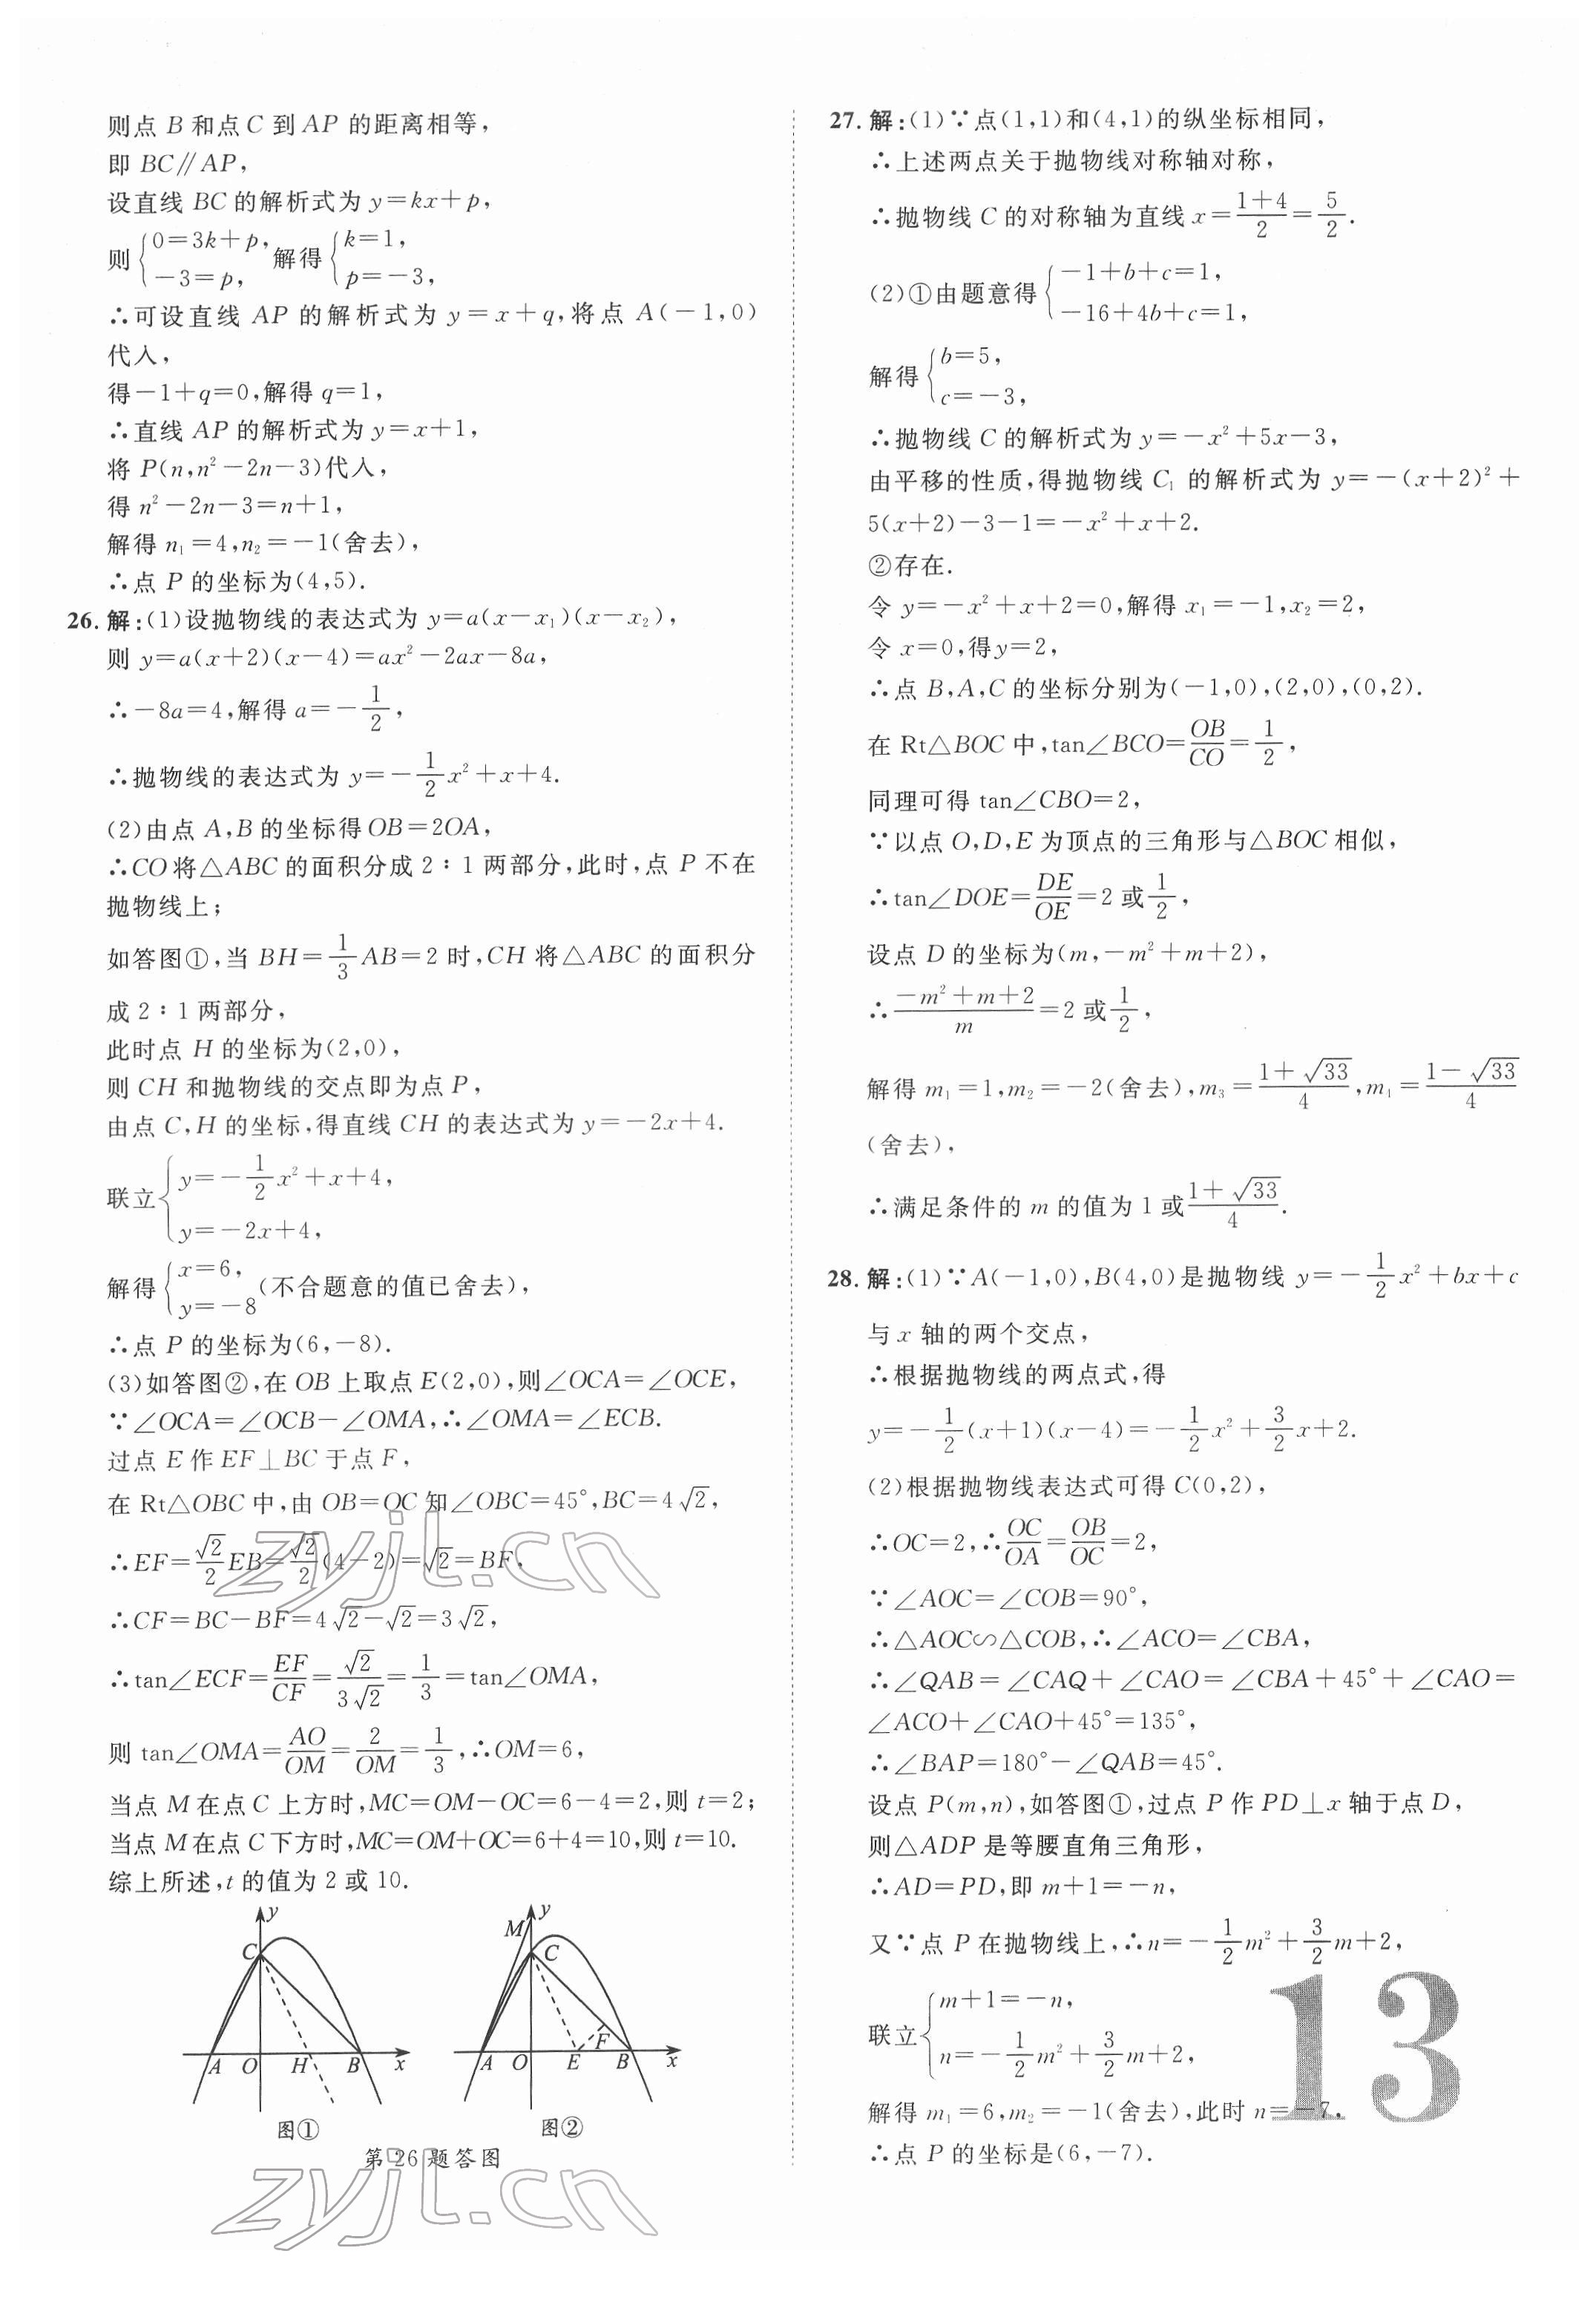 则点 B 和点 C 到 AP 的距离相等,
即 BC∥AP,
设直线 BC 的解析式为 y=kx+p,
则{0=3k+p, -3=p, 解得{k=1, p=-3,
∴可设直线 AP 的解析式为 y=x+q,将点 A(-1,0)
代入,
得-1+q=0,解得 q=1,
∴直线 AP 的解析式为 y=x+1,
将 P(n,n²-2n-3)代入,
得 n²-2n-3=n+1,
解得 n₁=4,n₂=-1(舍去),
∴点 P 的坐标为(4,5).
26. 解:(1)设抛物线的表达式为 y=a(x-x₁)(x-x₂),
则 y=a(x+2)(x-4)=ax²-2ax-8a,
∴-8a=4,解得 a=-1/2,
∴抛物线的表达式为 y=-1/2x²+x+4.
(2)由点 A,B 的坐标得 OB=2OA,
∴CO 将△ABC 的面积分成 2∶1 两部分,此时,点 P 不在
抛物线上;
如答图①,当 BH=1/3AB=2 时,CH 将△ABC 的面积分
成 2∶1 两部分,
此时点 H 的坐标为(2,0),
则 CH 和抛物线的交点即为点 P,
由点 C,H 的坐标,得直线 CH 的表达式为 y=-2x+4.
联立{y=-1/2x²+x+4, y=-2x+4,
解得{x=6, y=-8 (不合题意的值已舍去),
∴点 P 的坐标为(6,-8).
(3)如答图②,在 OB 上取点 E(2,0),则∠OCA=∠OCE,
∵∠OCA=∠OCB-∠OMA,∴∠OMA=∠ECB.
过点 E 作 EF⊥BC 于点 F,
在 Rt△OBC 中,由 OB=OC 知∠OBC=45°,BC=4√2,
∴EF=√2/2EB=√2/2(4-2)=√2=BF,
∴CF=BC-BF=4√2-√2=3√2,
∴tan∠ECF=EF/CF=√2/3√2=1/3=tan∠OMA,
则 tan∠OMA=AO/OM=2/OM=1/3,∴OM=6,
当点 M 在点 C 上方时,MC=OM-OC=6-4=2,则 t=2;
当点 M 在点 C 下方时,MC=OM+OC=6+4=10,则 t=10.
综上所述,t 的值为 2 或 10.
y
C
A O H B x
图①
M y
C
F
A O E B x
图②
第 26 题答图
27. 解:(1)∵点(1,1)和(4,1)的纵坐标相同,
∴上述两点关于抛物线对称轴对称,
∴抛物线 C 的对称轴为直线 x=(1+4)/2=5/2.
(2)①由题意得{-1+b+c=1, -16+4b+c=1,
解得{b=5, c=-3,
∴抛物线 C 的解析式为 y=-x²+5x-3,
由平移的性质,得抛物线 C₁ 的解析式为 y=-(x+2)²+
5(x+2)-3-1=-x²+x+2.
②存在.
令 y=-x²+x+2=0,解得 x₁=-1,x₂=2,
令 x=0,得y=2,
∴点 B,A,C 的坐标分别为(-1,0),(2,0),(0,2).
在 Rt△BOC 中,tan∠BCO=OB/CO=1/2,
同理可得 tan∠CBO=2,
∵以点 O,D,E 为顶点的三角形与△BOC 相似,
∴tan∠DOE=DE/OE=2 或1/2,
设点 D 的坐标为(m,-m²+m+2),
∴(-m²+m+2)/m=2 或1/2,
解得 m₁=1,m₂=-2(舍去),m₃=(1+√33)/4,m₁=(1-√33)/4
(舍去),
∴满足条件的 m 的值为 1 或(1+√33)/4.
28. 解:(1)∵A(-1,0),B(4,0)是抛物线 y=-1/2x²+bx+c
与 x 轴的两个交点,
∴根据抛物线的两点式,得
y=-1/2(x+1)(x-4)=-1/2x²+3/2x+2.
(2)根据抛物线表达式可得 C(0,2),
∴OC=2,∴OC/OA=OB/OC=2,
∵∠AOC=∠COB=90°,
∴△AOC∽△COB,∴∠ACO=∠CBA,
∴∠QAB=∠CAQ+∠CAO=∠CBA+45°+∠CAO=
∠ACO+∠CAO+45°=135°,
∴∠BAP=180°-∠QAB=45°.
设点 P(m,n),如答图①,过点 P 作 PD⊥x 轴于点 D,
则△ADP 是等腰直角三角形,
∴AD=PD,即 m+1=-n,
又∵点 P 在抛物线上,∴n=-1/2m²+3/2m+2,
联立{m+1=-n, n=-1/2m²+3/2m+2,
解得 m₁=6,m₂=-1(舍去),此时 n=-7,
∴点 P 的坐标是(6,-7).
13
zyjl.cn
zyjl.cn